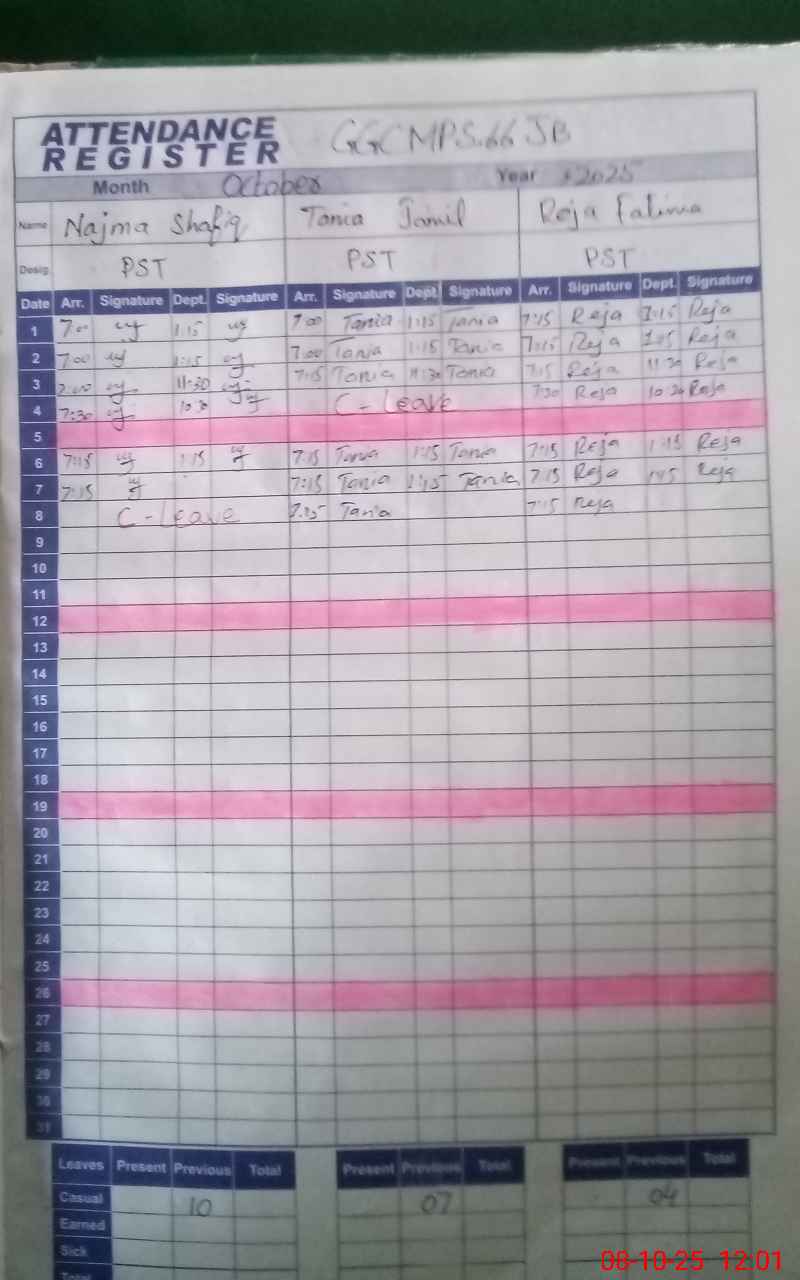 ATTENDANCE REGISTER GGCMPS.66 JB
Month October Year 2025
Name Najma Shafiq Tania Jamil Reja Fatima
Desig. PST PST PST
Date Arr. Signature Dept. Signature Arr. Signature Dept. Signature Arr. Signature Dept. Signature
1 7:00 1:15 7:00 Tania 1:15 Tania 7:15 Reja 1:15 Reja
2 7:00 1:15 7:00 Tania 1:15 Tania 7:15 Reja Reja
3 11:30 7:15 Tania 11:30 Tania 7:15 Reja 11:30 Reja
4 7:30 10:30 C-Leave 7:30 Reja 10:30 Reja
5
6 7:15 1:15 7:15 Tania 1:15 Tania 7:15 Reja 1:15 Reja
7 7:15 7:15 Tania 1:15 Tania 7:15 Reja Reja
8 C-Leave 7:15 Tania 7:15 Reja
9
10
11
12
13
14
15
16
17
18
19
20
21
22
23
24
25
26
27
28
29
30
31
Leaves Present Previous Total Present Previous Total Present Previous Total
Casual 10 07 04
Earned
Sick
Total
08-10-25 12:01